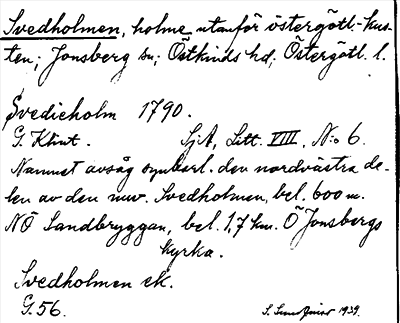 Svedholmen, holme utanför östergötl.-kus-
ten; Jonsberg sn; Östkinds hd; Östergötl. l.
Svedieholm 1790.
G. Klint. SjA, Litt. VIII, No 6.
Namnet avsåg synbarl. den nordvästra de-
len av den nuv. Svedholmen, bel. 600 m.
NÖ Sandbryggan, bel. 1,7 km. Ö Jonsbergs
kyrka.
Svedholmen ek.
G. 56.
S. 1939.